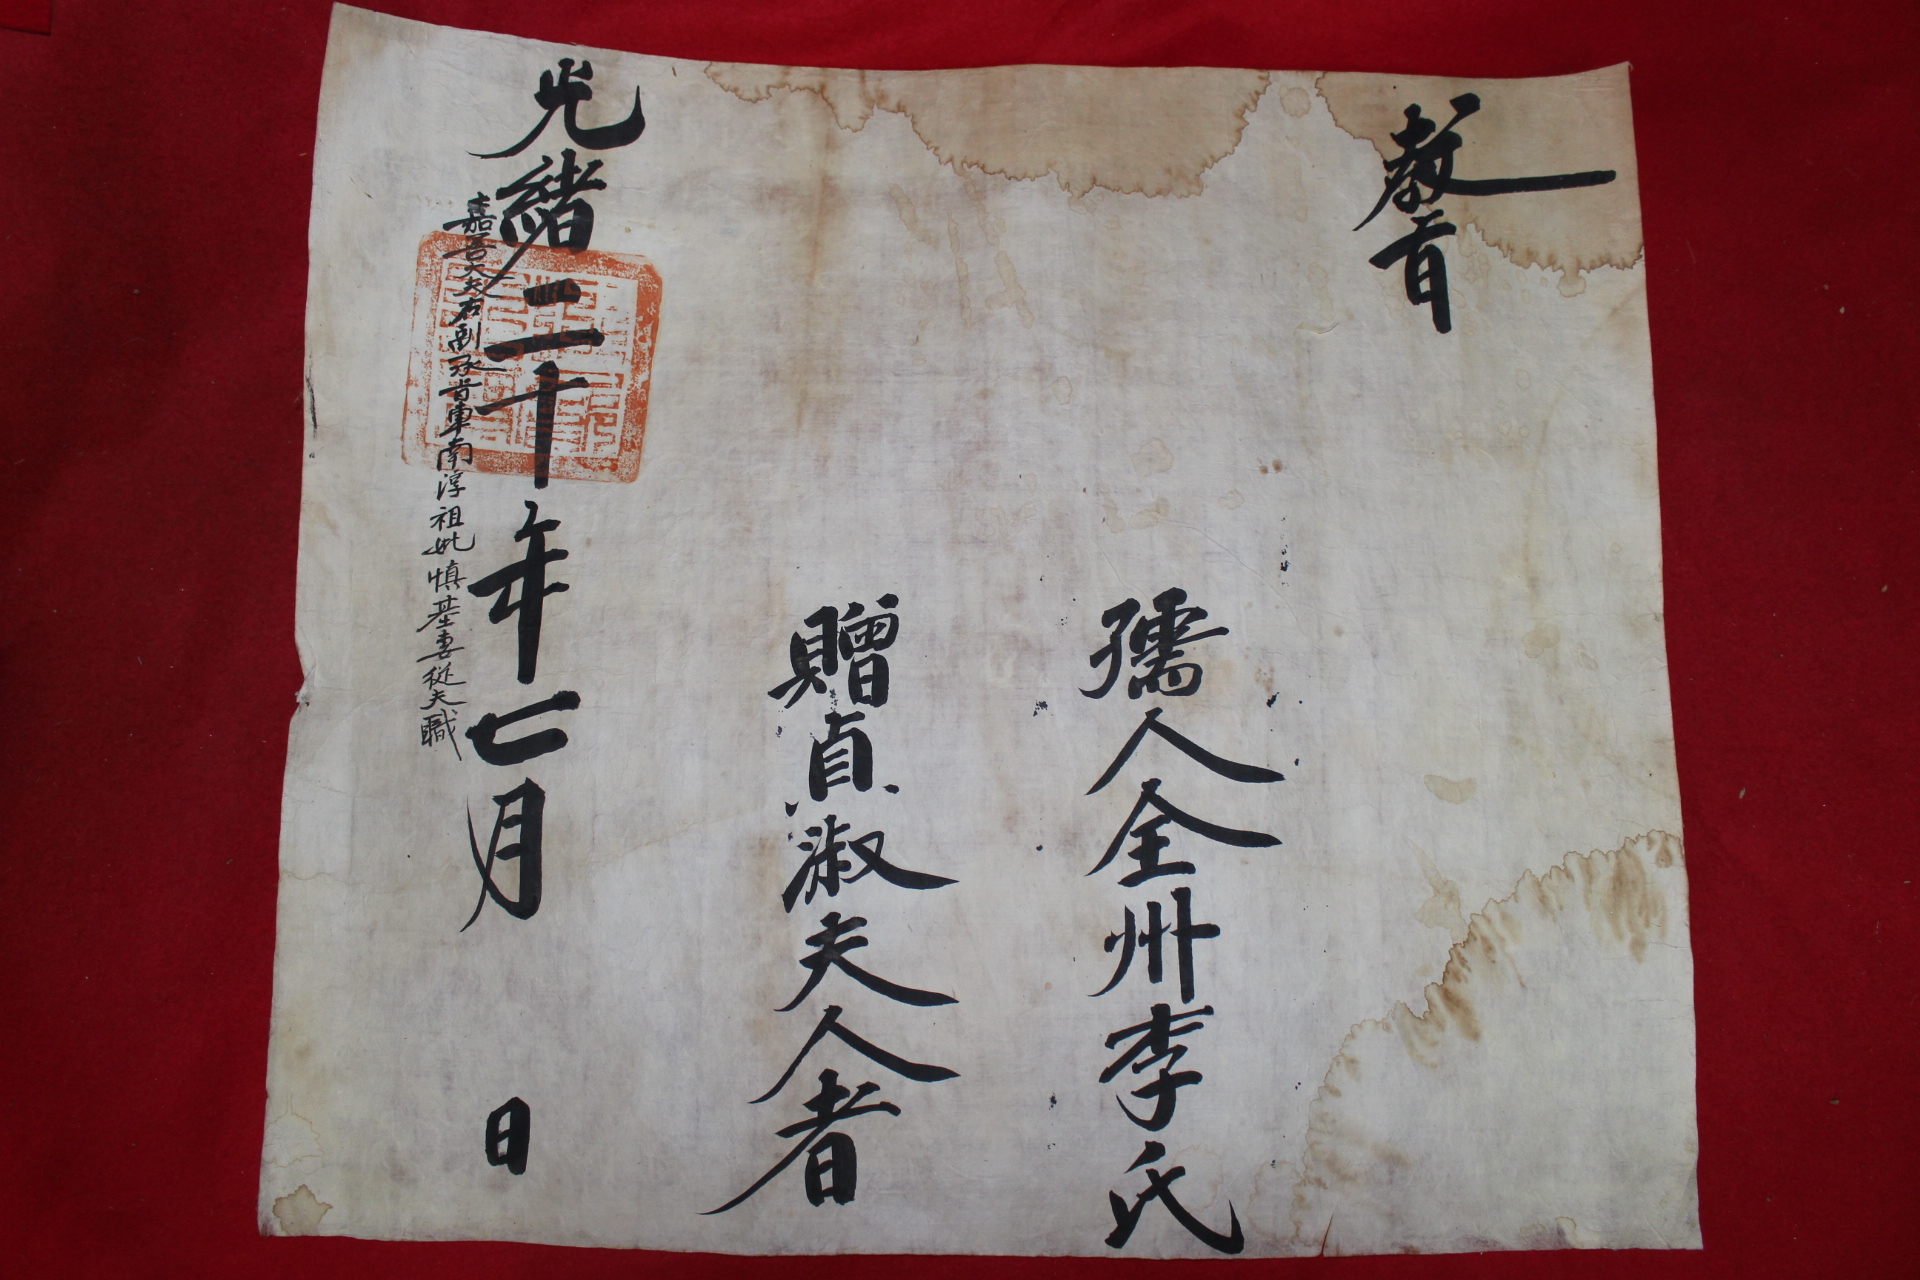 教旨
孺人全州李氏
贈貞淑夫人者
光緖二十年七月 日
嘉善大夫右副承旨車南淳祖妣愼基妻從夫職